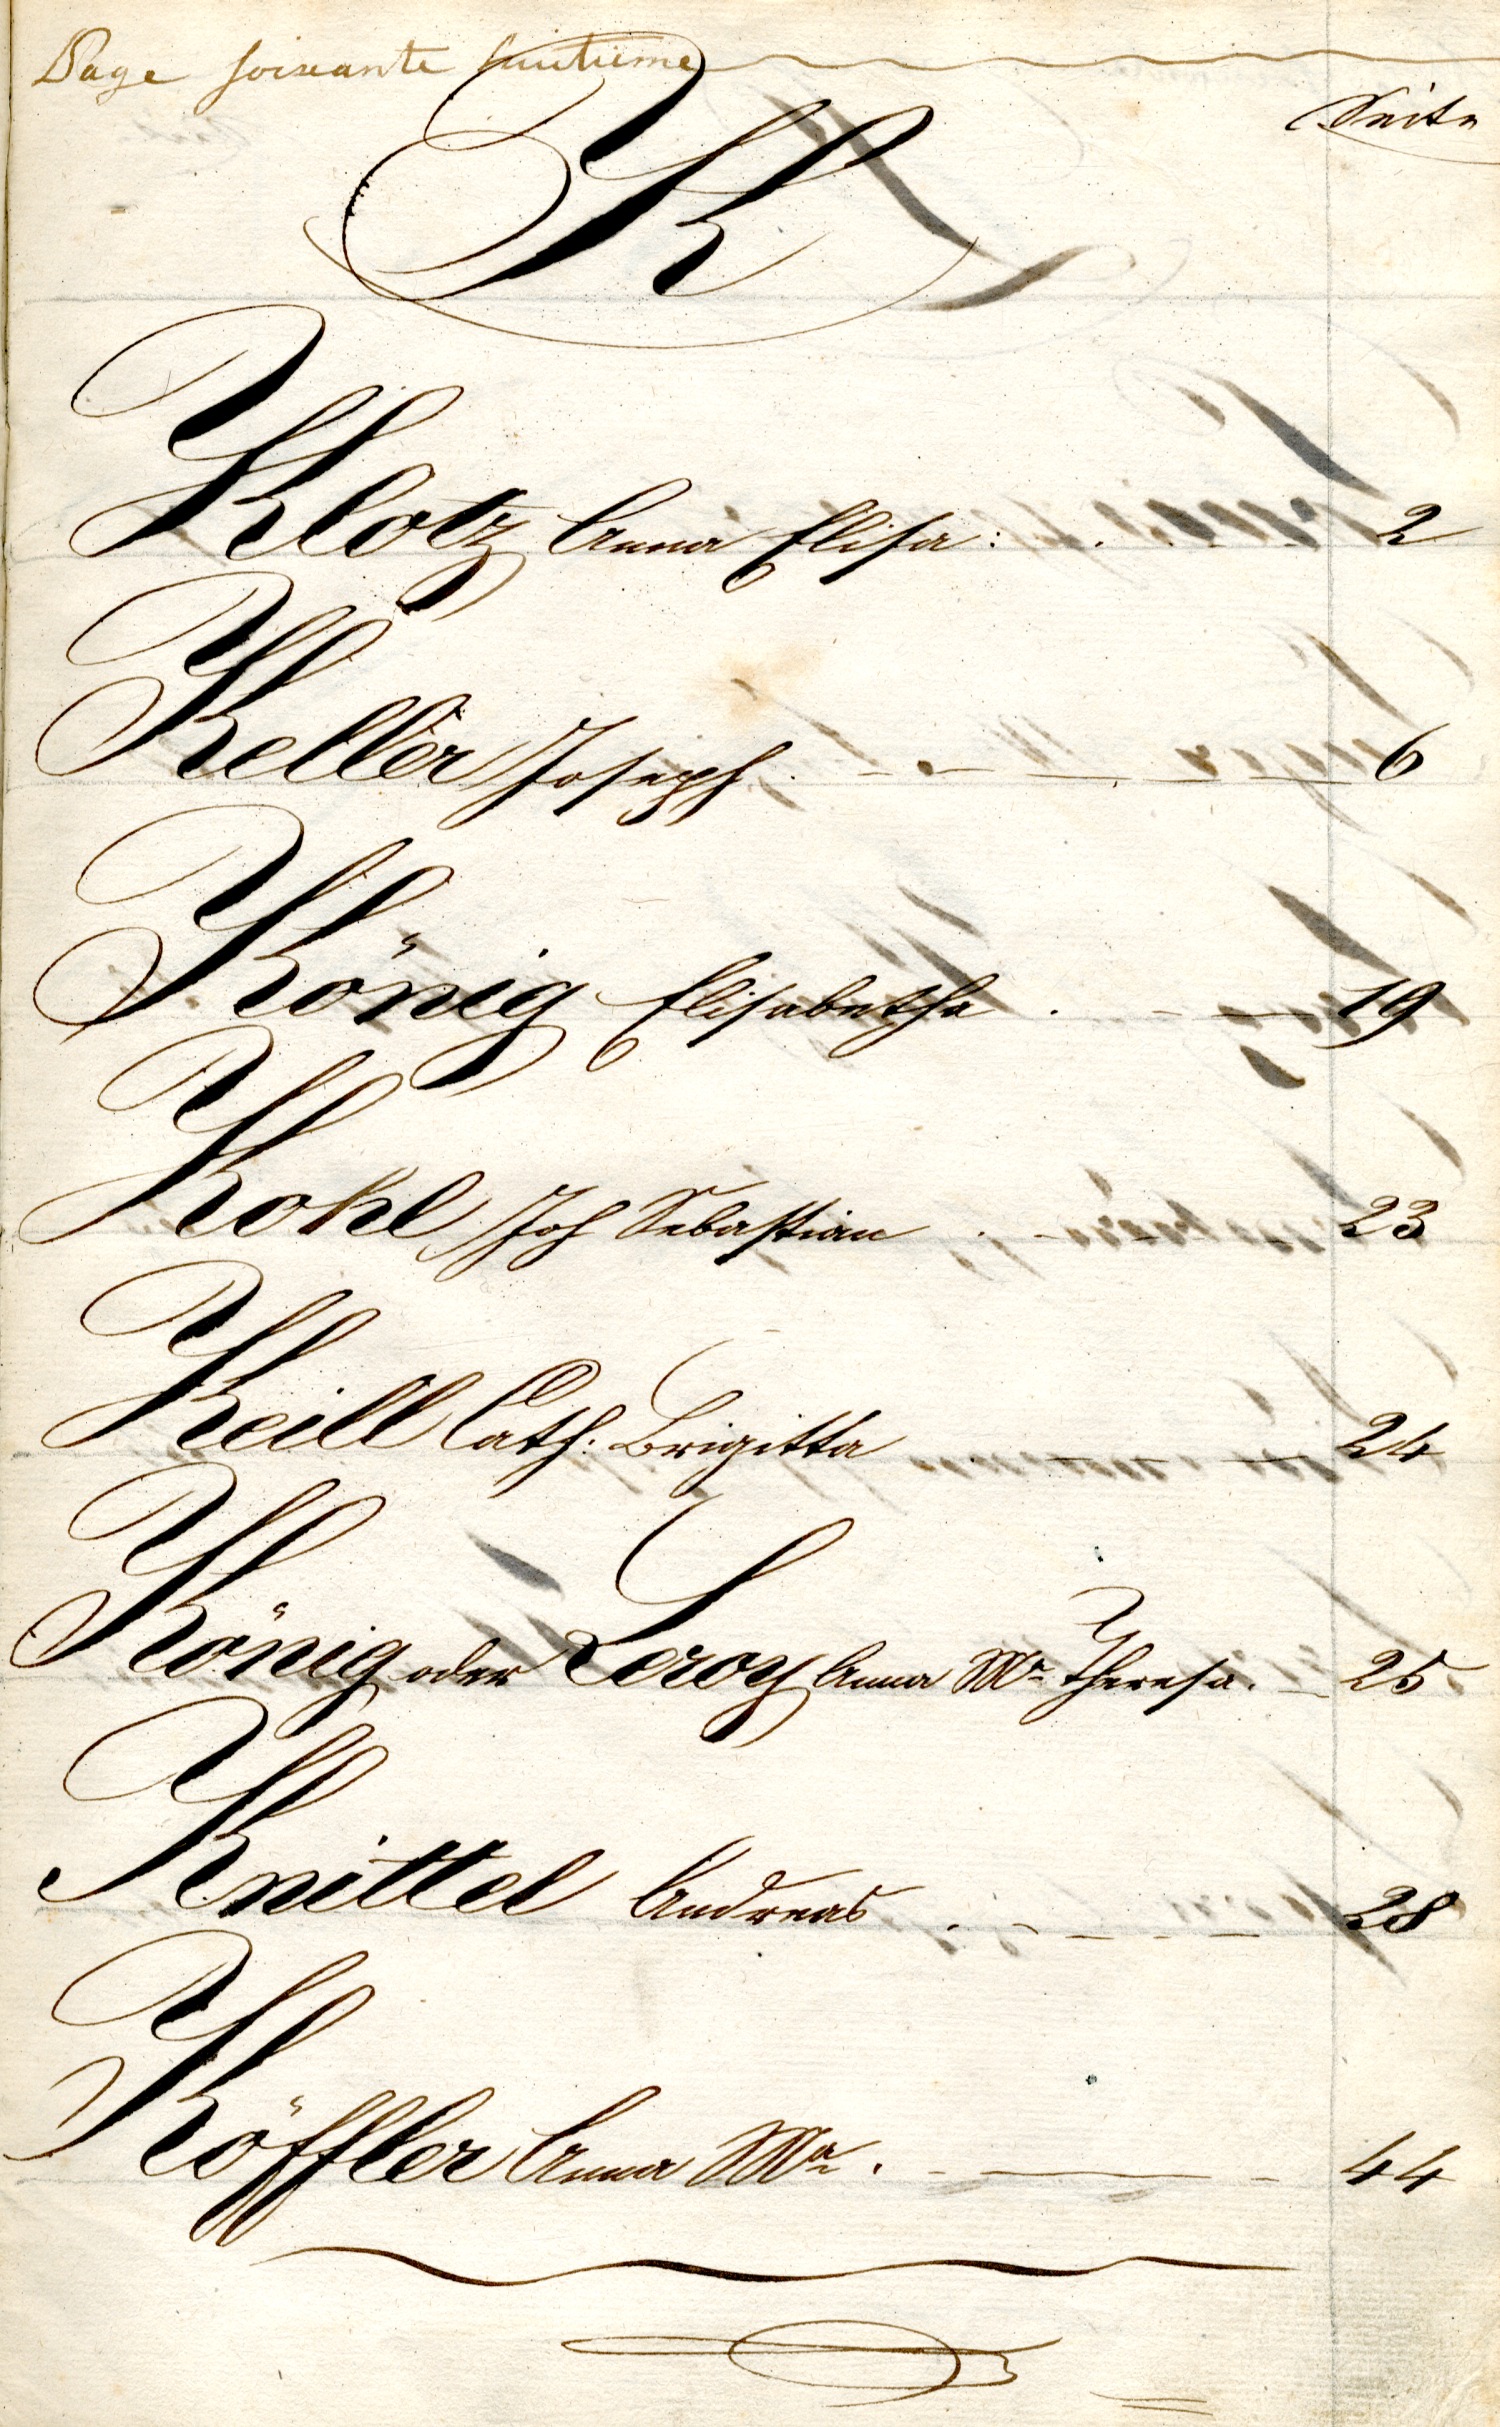 Page soixante huitieme
Seite
K
Klotz Anna Elisa: . . . . 2
Keller Joseph . - . - - - 6
König Elisabetha . - - - 19
Kohl Joh Sebastian . - - - 23
Keill Cath: Brigitta - - - 24
König oder Leroy Anna Ma Theresa. - 25
Knittel Andreas . - . - - - 28
Köffler Anna Ma . - - - 44